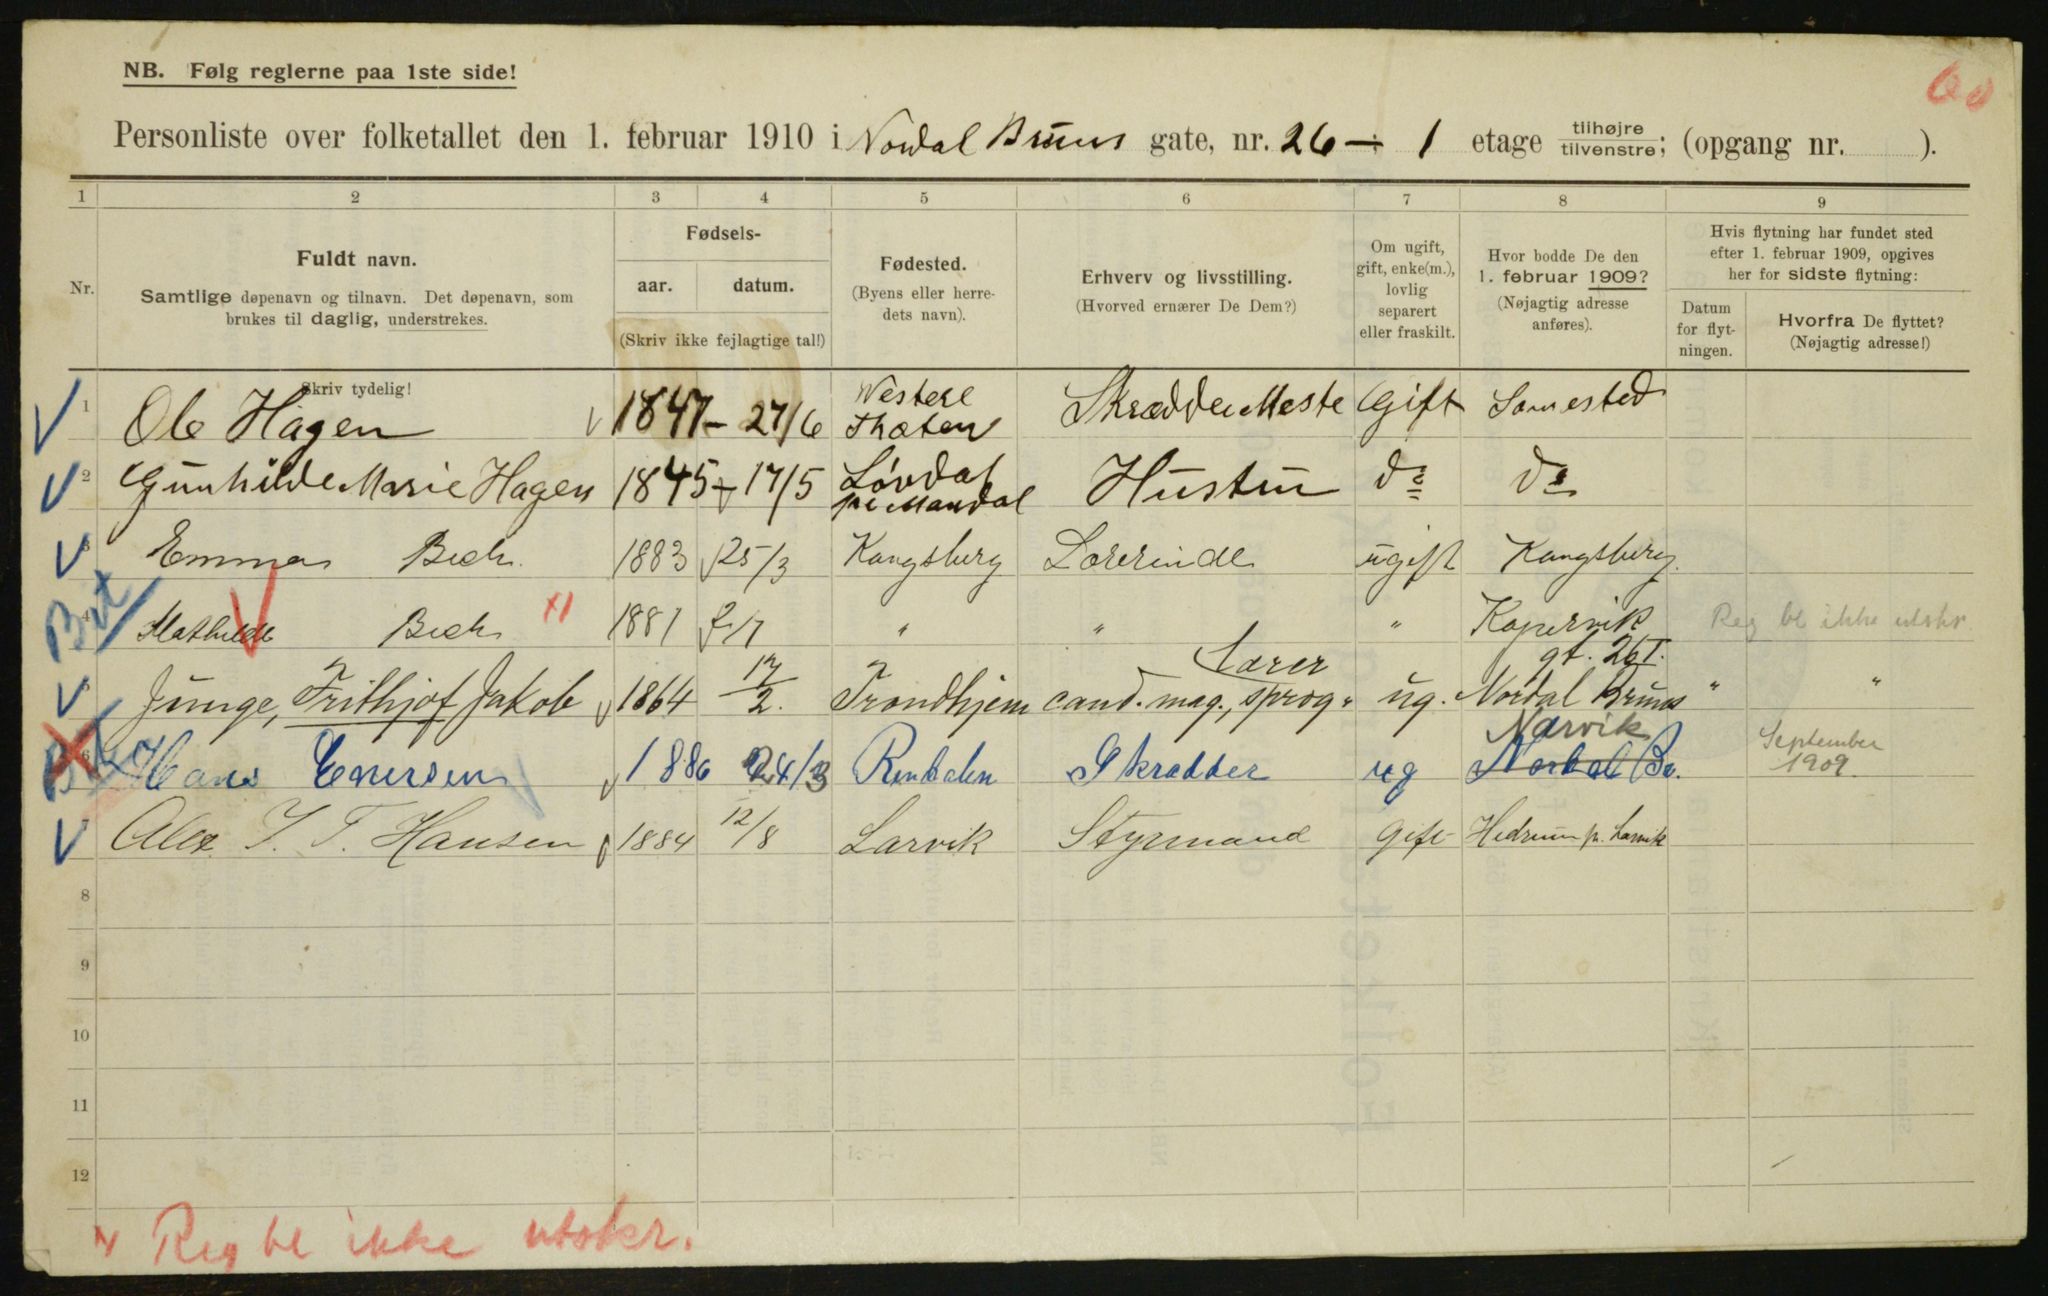 60
NB. Følg reglerne paa 1ste side!
Personliste over folketallet den 1. februar 1910 i Nordal Bruns gate, nr. 26 – 1 etage tilhøjre tilvenstre; (opgang nr. ).
1 2 3 4 5 6 7 8 9
Nr.
Fuldt navn.
Samtlige døpenavn og tilnavn. Det døpenavn, som
brukes til daglig, understrekes.
Skriv tydelig!
Fødsels-
aar. datum.
(Skriv ikke fejlagtige tal!)
Fødested.
(Byens eller herre-
dets navn).
Erhverv og livsstilling.
(Hvorved ernærer De Dem?)
Om ugift,
gift, enke(m.),
lovlig
separert
eller fraskilt.
Hvor bodde De den
1. februar 1909?
(Nøjagtig adresse
anføres).
Hvis flytning har fundet sted
efter 1. februar 1909, opgives
her for sidste flytning:
Datum
for flyt-
ningen.
Hvorfra De flyttet?
(Nøjagtig adresse!)
1 Ole Hagen 1847 – 27/6 Westere Thoten SkrædderMeste Gift Samested
2 Gunhilde Marie Hagen 1845 – 17/5 Løvdal pr Mandal Hustru do do
3 Emma Bech 1883 25/3 Kongsberg Lærerinde ugift Kongsberg
4 Mathilde Bech x) 1881 2/7 " " " Kopervik Reg be ikke utskr.
5 Junge, Frithjof Jakob 1864 17/2. Trondhjem cand. mag., sprog- Lærer ug. Nordal Bruns gt. 26 I. " "
6 Hans Enersen 1886 24/3 Rendalen Skrædder ug Nordal Br. Narvik September 1909.
7 Alex. I. T. Hansen 1884 12/8 Larvik Styrmand Gift Hedrum p. Larvik
8
9
10
11
12
x Reg be ikke utskr.